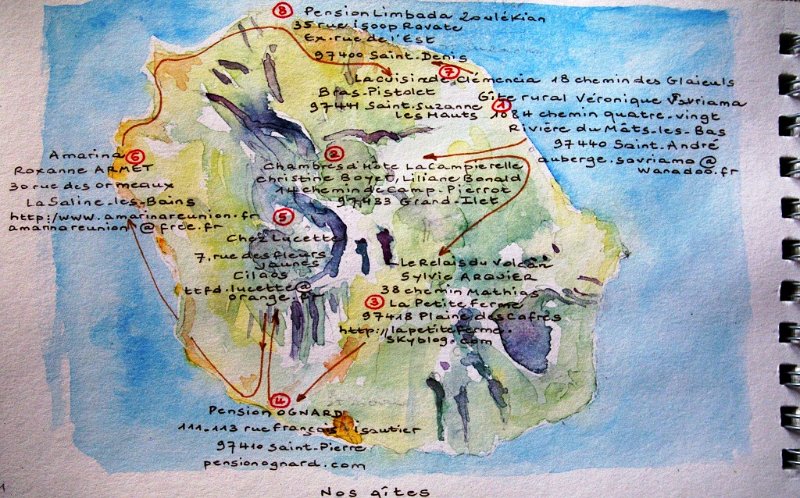 8 Pension Limbada Zoulékian
35 rue isoop Ravate
Ex. rue de l'Est
97400 Saint-Denis
7
La cuisine de Clémencia 18 chemin des Glaïeuls
Bras-Pistolet
97441 Saint-Suzanne
Les Hauts
Gîte rural Véronique Savriama
1
1084 chemin quatre-vingt
Rivière du Mâts-les-Bas
97440 Saint-André
auberge.savriama@
wanadoo.fr
2
Chambres d'Hôte La Campierelle
Christine Boyer, Liliane Bonald
14 chemin de Camp-Pierrot
97433 Grand-Ilet
Le Relais du Volcan
Sylvie ARQUIER
38 chemin Mathias
3 La Petite Ferme
97418 Plaine des Cafres
http://lapetiteferme.
skyblog.com
4
Pension OGNARD
111-113 rue François isautier
97410 Saint-Pierre
pensionognard.com
5
Chez Lucette
7, rue des fleurs
jaunes
Cilaos
ttfd.lucette@
orange.fr
Amarina 6
Roxanne ARMET
30 rue des ormeaux
La Saline-les-Bains
http://www.amarinareunion.fr
amarinareunion@free.fr
Nos gîtes